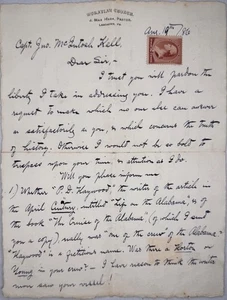 Capt. Jno. McIntosh Kell.
Dear Sir,—
I trust you will pardon the
liberty I take in addressing you. I have a
request to make which no one else can answer
so satisfactorily as you, & which concerns the truth
of history. Otherwise I would not be so bold to
trespass upon your time & attention as I do.
Will you please inform me
1) Whether "P. D. Haywood" the writer of the article in
the April Century, entitled "Life on the Alabama," & of
the book "The Cruise of the Alabama" (of which I sent
you a copy), really was "one of the crew" of the Alabama?
"Haywood" is a fictitious name. Was there a Horton or
Young in your crew? — I have reason to think the writer
never saw your vessel!